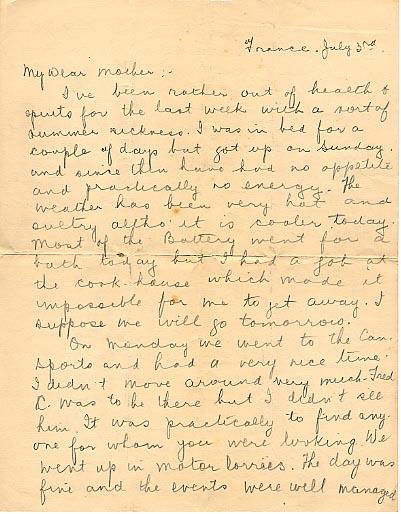 France. July 3rd.
My Dear Mother;-
I've been rather out of health &
spirits for the last week with a sort of
summer sickness. I was in bed for a
couple of days but got up on Sunday.
and since then have had no appetite
and practically no energy. The
weather has been very hot and
sultry altho' it is cooler today.
Most of the Battery went for a
bath today but I had a job at
the cook-house which made it
impossible for me to get away. I
suppose we will go tomorrow.
On Monday we went to the Can.
Sports and had a very nice time.
I didn't move around very much. Fred
C. was to be there but I didn't see
him. It was practically to find any-
one for whom you were looking. We
went up in motor lorries. The day was
fine and the events were well managed